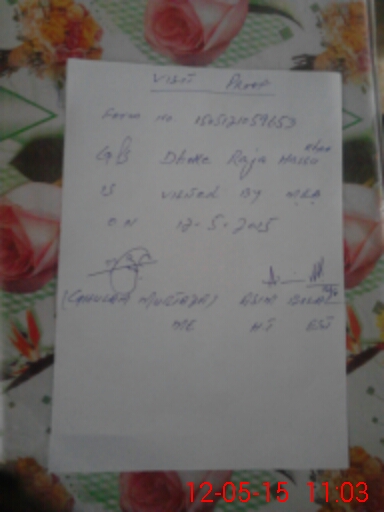 VISIT PROOF
Form no 1505121059653
G/S Dhoke Raja
is visited By MEA
on 12-5-2015
(GHULAM MURTAZA) ASIM BILAL
ME HT EST
12-05-15 11:03